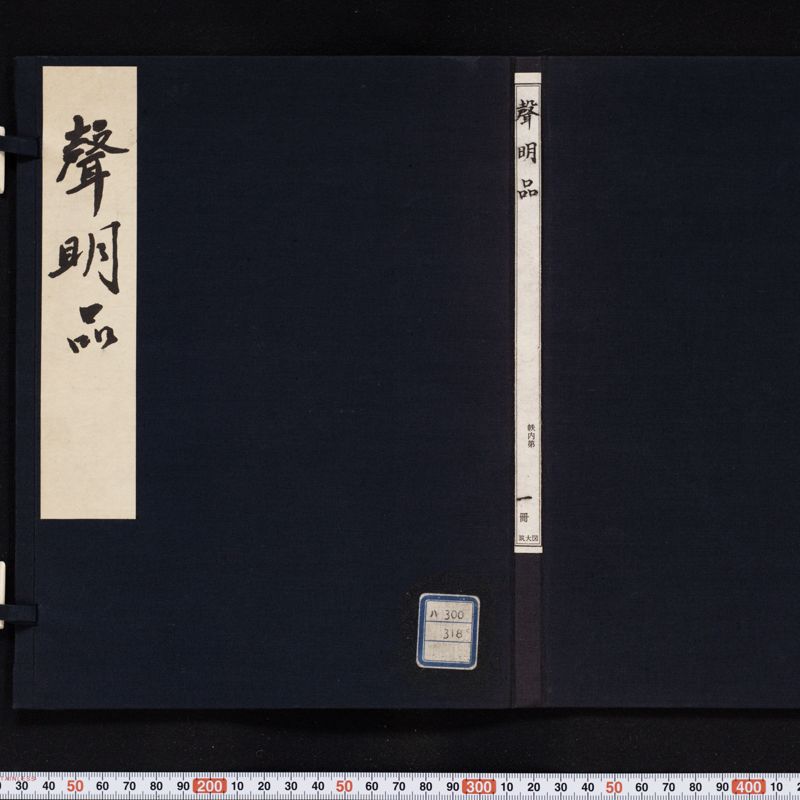 聲明品
聲明品
帙内第
一冊
筑大図
ハ300
318
STAINLESS
30 40 50 60 70 80 90 200 10 20 30 40 50 60 70 80 90 300 10 20 30 40 50 60 70 80 90 400 10